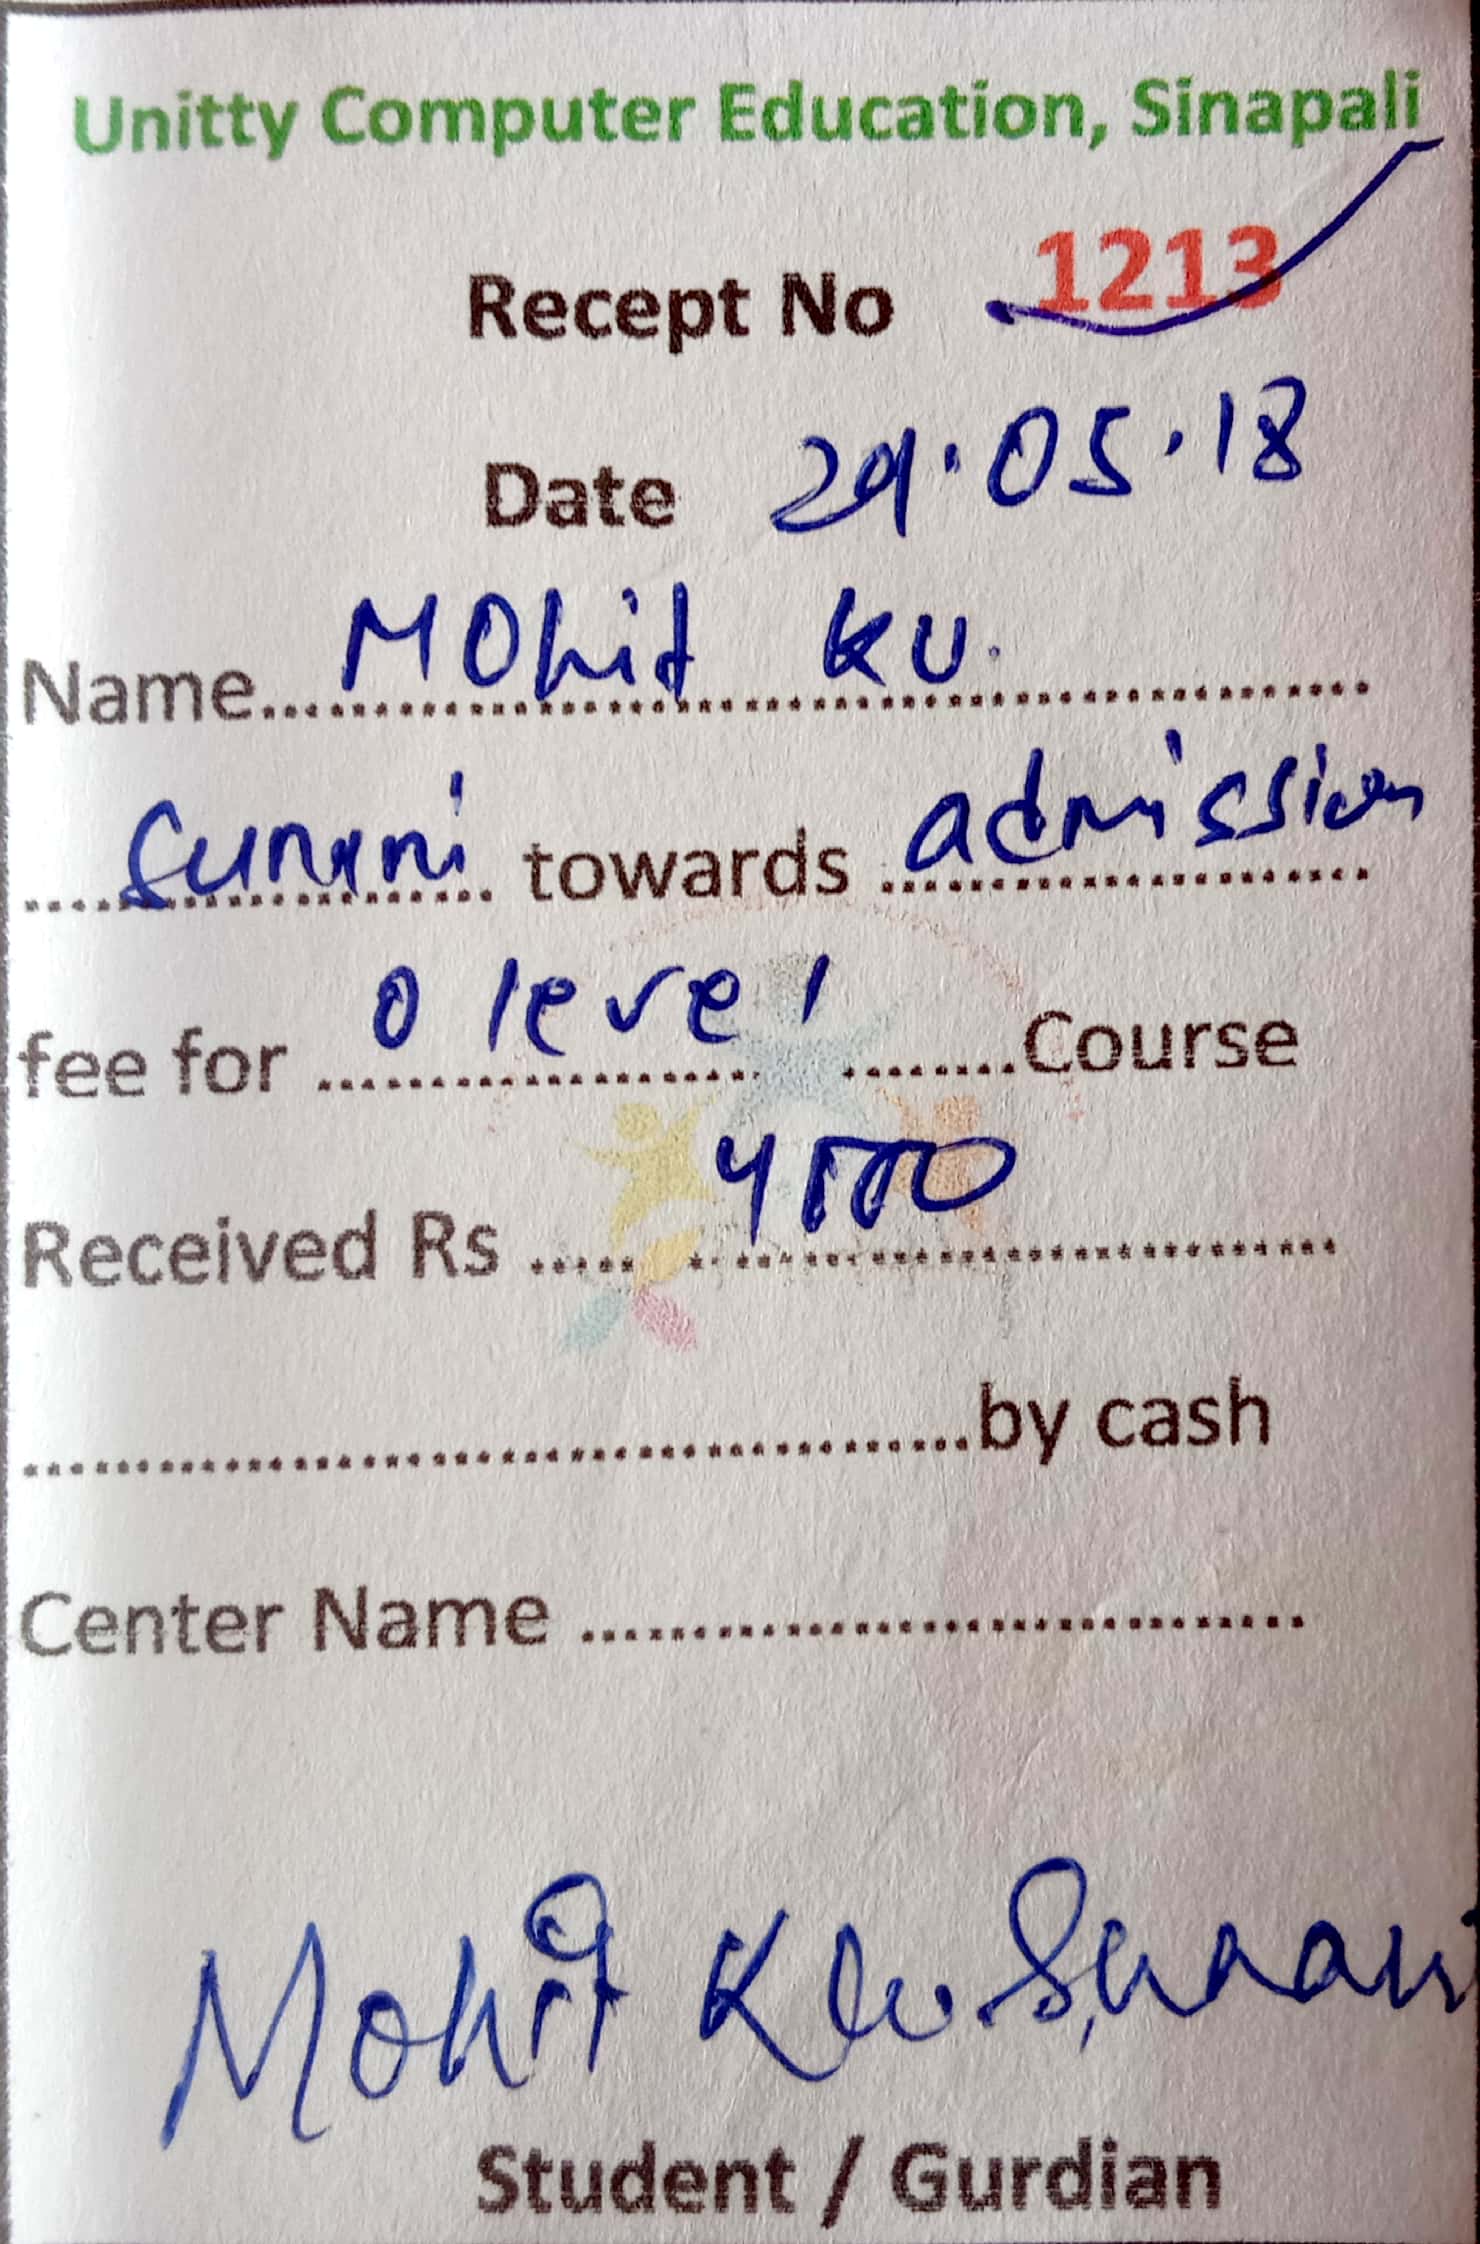 Unitty Computer Education, Sinapali
Recept No 1213
Date 29.05.18
Name.......... Mohit Ku.
Sunani towards admission
fee for O level ........Course
Received Rs ..... 4500
..........by cash
Center Name ..........
Mohit Ku. Sunani
Student / Gurdian